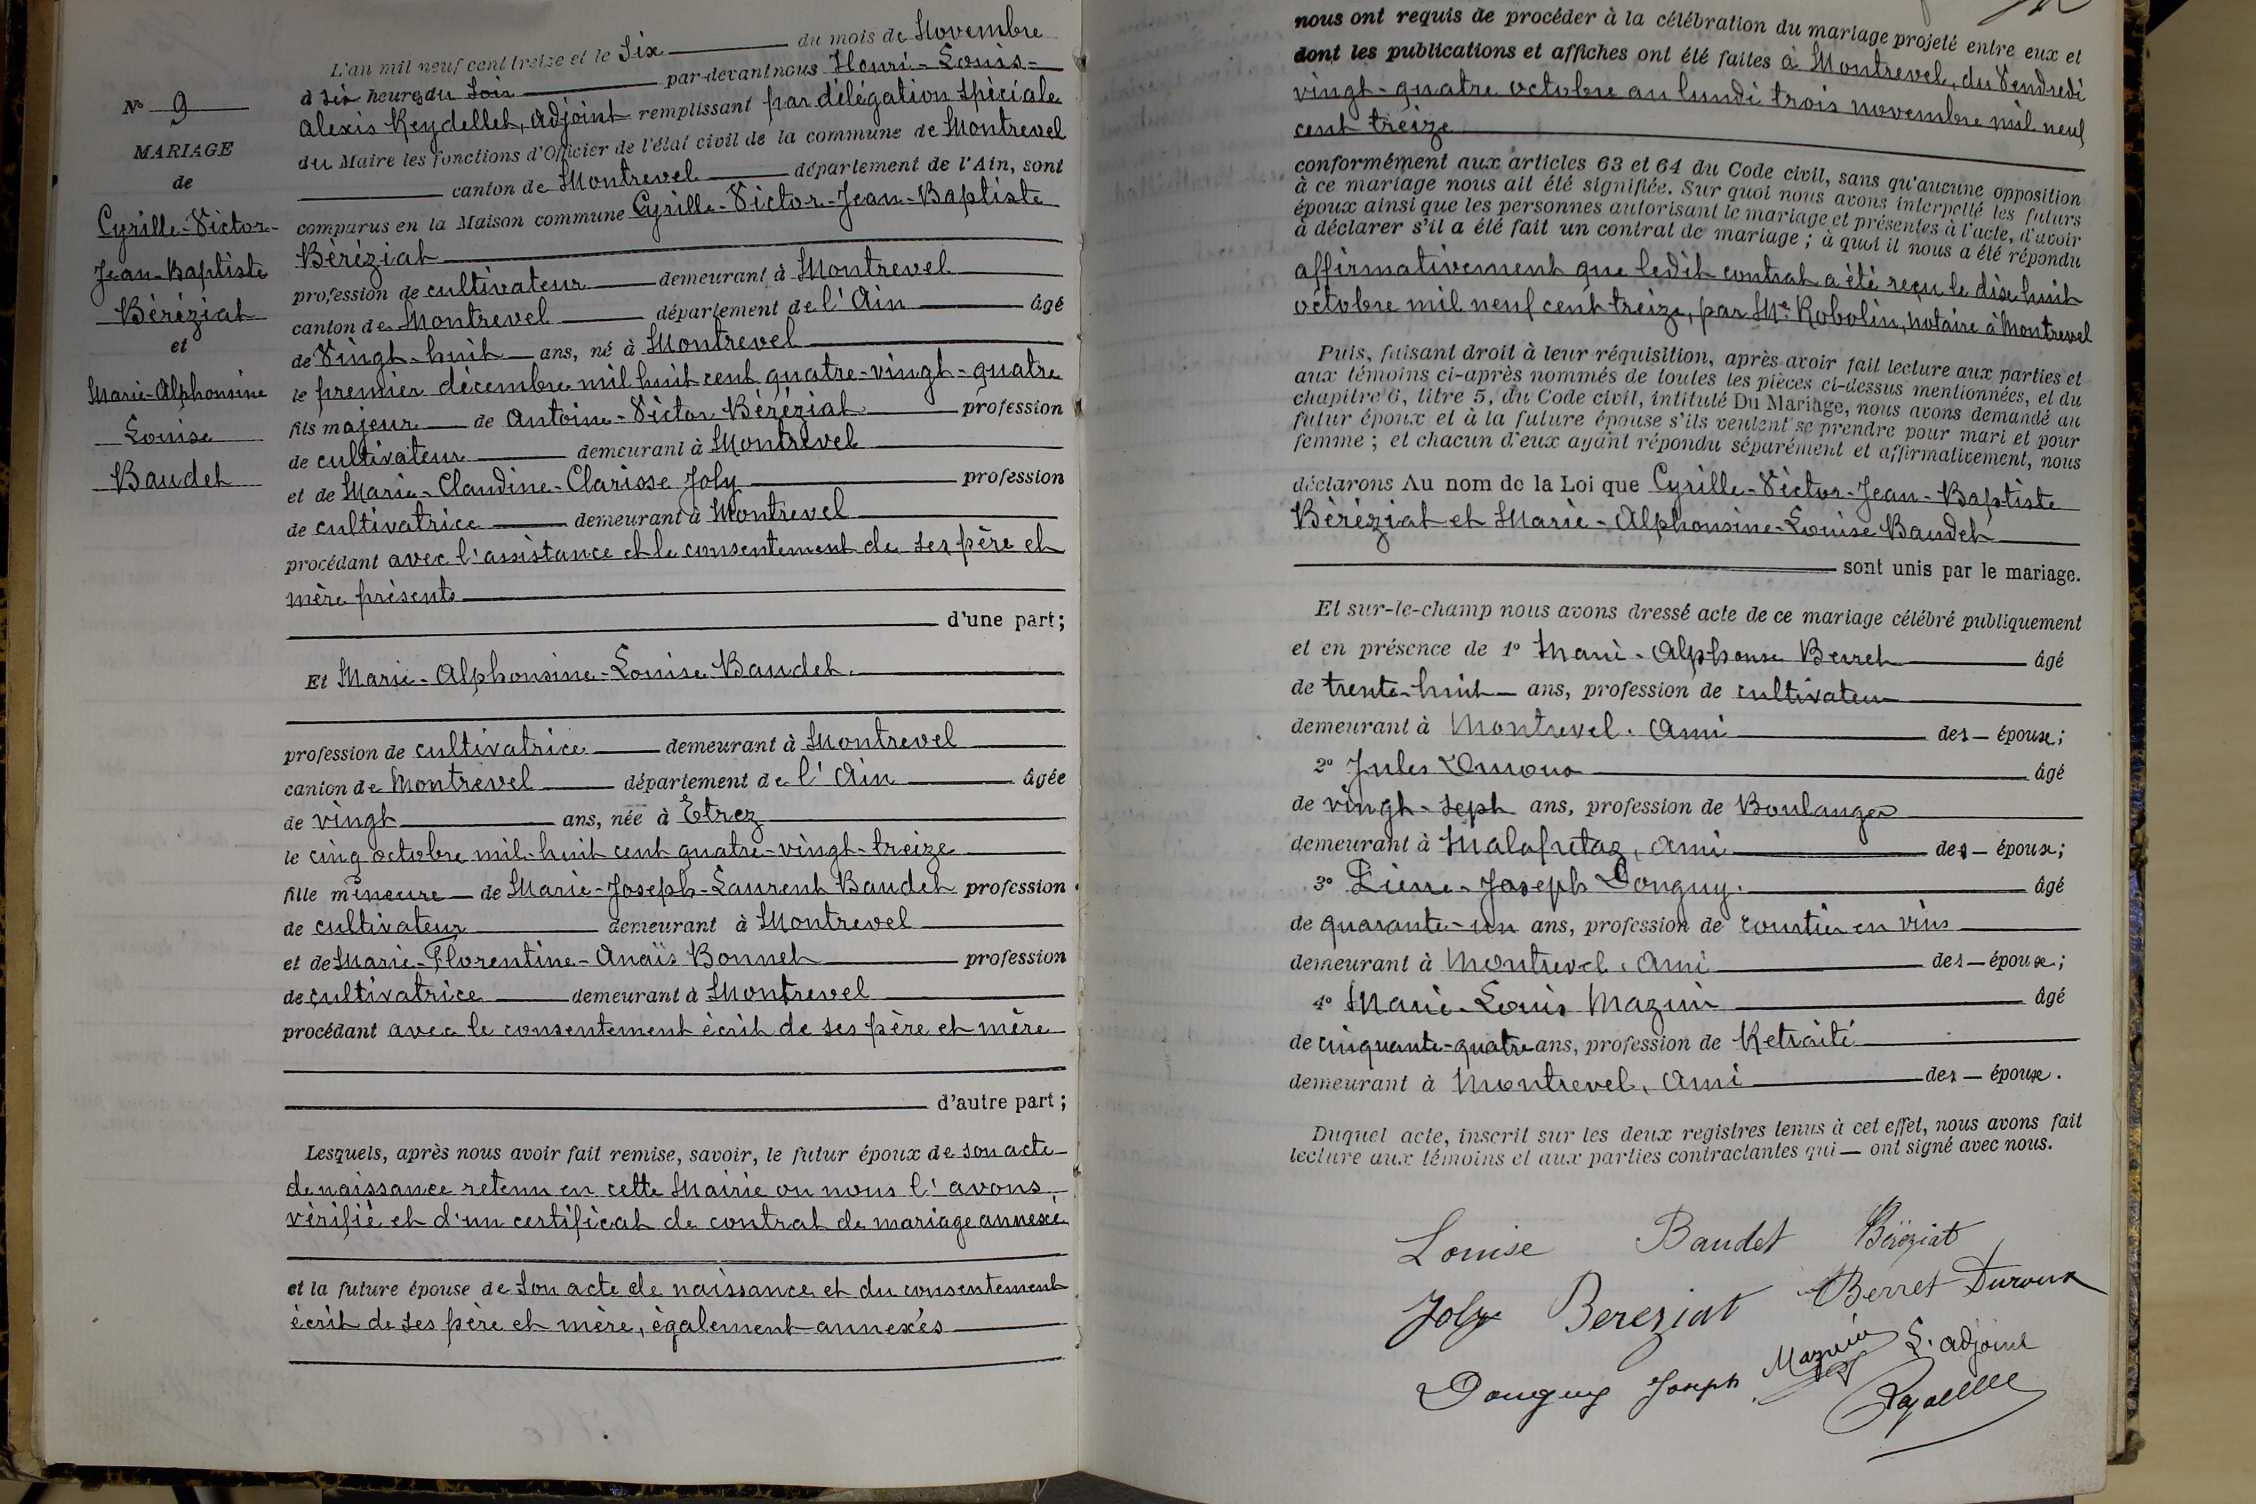 N° 9
MARIAGE
de
Cyrille-Victor-
Jean-Baptiste
Béréziat
et
Marie-Alphonsine
Louise
Baudet
L'an mil neuf cent treize et le Six du mois de Novembre
à six heures du Soir par-devant nous Henri-Louis-
Alexis Reydellet, Adjoint remplissant par délégation spéciale
du Maire les fonctions d'Officier de l'état civil de la commune de Montrevel
canton de Montrevel département de l'Ain, sont
comparus en la Maison commune Cyrille-Victor-Jean-Baptiste
Béréziat
profession de cultivateur demeurant à Montrevel
canton de Montrevel département de l'Ain âgé
de Vingt-huit ans, né à Montrevel
le premier décembre mil huit cent quatre-vingt-quatre
fils majeur de Antoine-Victor Béréziat profession
de cultivateur demeurant à Montrevel
et de Marie-Claudine-Clarisse Joly profession
de cultivatrice demeurant à Montrevel
procédant avec l'assistance et le consentement de ses père et
mère présents
d'une part;
Et Marie-Alphonsine-Louise Baudet.
profession de cultivatrice demeurant à Montrevel
canton de Montrevel département de l'Ain âgée
de vingt ans, née à Etrez
le cinq octobre mil-huit cent quatre-vingt-treize
fille mineure de Marie-Joseph-Laurent Baudet profession
de cultivateur demeurant à Montrevel
et de Marie-Florentine-Anaïs Bonnet profession
de cultivatrice demeurant à Montrevel
procédant avec le consentement écrit de ses père et mère
d'autre part;
Lesquels, après nous avoir fait remise, savoir, le futur époux de son acte
de naissance retenu en cette Mairie ou nous l'avons
vérifié et d'un certificat de contrat de mariage annexé
et la future épouse de Son acte de naissance et du consentement
écrit de ses père et mère, également annexés
nous ont requis de procéder à la célébration du mariage projeté entre eux et
dont les publications et affiches ont été faites à Montrevel, du Vendredi
vingt-quatre octobre au lundi trois novembre mil neuf
cent treize
conformément aux articles 63 et 64 du Code civil, sans qu'aucune opposition
à ce mariage nous ait été signifiée. Sur quoi nous avons interpellé les futurs
époux ainsi que les personnes autorisant le mariage et présentes à l'acte, d'avoir
à déclarer s'il a été fait un contrat de mariage; à quoi il nous a été répondu
affirmativement que ledit contrat a été reçu le dix huit
octobre mil neuf cent treize, par Me Robolin, notaire à Montrevel
Puis, faisant droit à leur réquisition, après avoir fait lecture aux parties et
aux témoins ci-après nommés de toutes les pièces ci-dessus mentionnées, et du
chapitre 6, titre 5, du Code civil, intitulé Du Mariage, nous avons demandé au
futur époux et à la future épouse s'ils veulent se prendre pour mari et pour
femme; et chacun d'eux ayant répondu séparément et affirmativement, nous
déclarons Au nom de la Loi que Cyrille-Victor-Jean-Baptiste
Béréziat et Marie-Alphonsine-Louise Baudet
sont unis par le mariage.
Et sur-le-champ nous avons dressé acte de ce mariage célébré publiquement
et en présence de 1° Marie-Alphonse Berret âgé
de trente-huit ans, profession de cultivateur
demeurant à Montrevel. Ami des époux;
2° Jules Duroux âgé
de vingt-sept ans, profession de Boulanger
demeurant à Malafretaz, Ami des époux;
3° Pierre-Joseph Donguy. âgé
de quarante-un ans, profession de courtier en vins
demeurant à Montrevel. Ami des époux;
4° Marie-Louis Mazuir âgé
de cinquante-quatre ans, profession de Retraité
demeurant à Montrevel, Ami des époux.
Duquel acte, inscrit sur les deux registres tenus à cet effet, nous avons fait
lecture aux témoins et aux parties contractantes qui ont signé avec nous.
Louise Baudet Béréziat
Joly Bereziat Berret Duroux
Donguy Joseph Mazuir L'adjoint
Reydellet